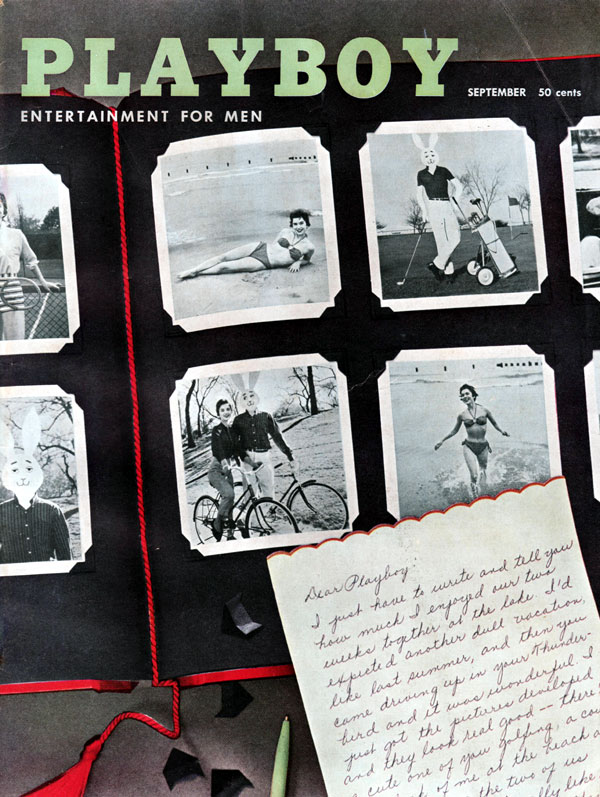 PLAYBOY
SEPTEMBER 50 cents
ENTERTAINMENT FOR MEN
Dear Playboy-
I just have to write and tell you
how much I enjoyed our two
weeks together at the lake. I'd
expected another dull vacation,
like last summer, and then you
came driving up in your Thunder-
bird and it was wonderful. I
just got the pictures developed
and they look real good -- there
a cute one of you golfing, a cou
of me at the beach a
the two of us
lly like